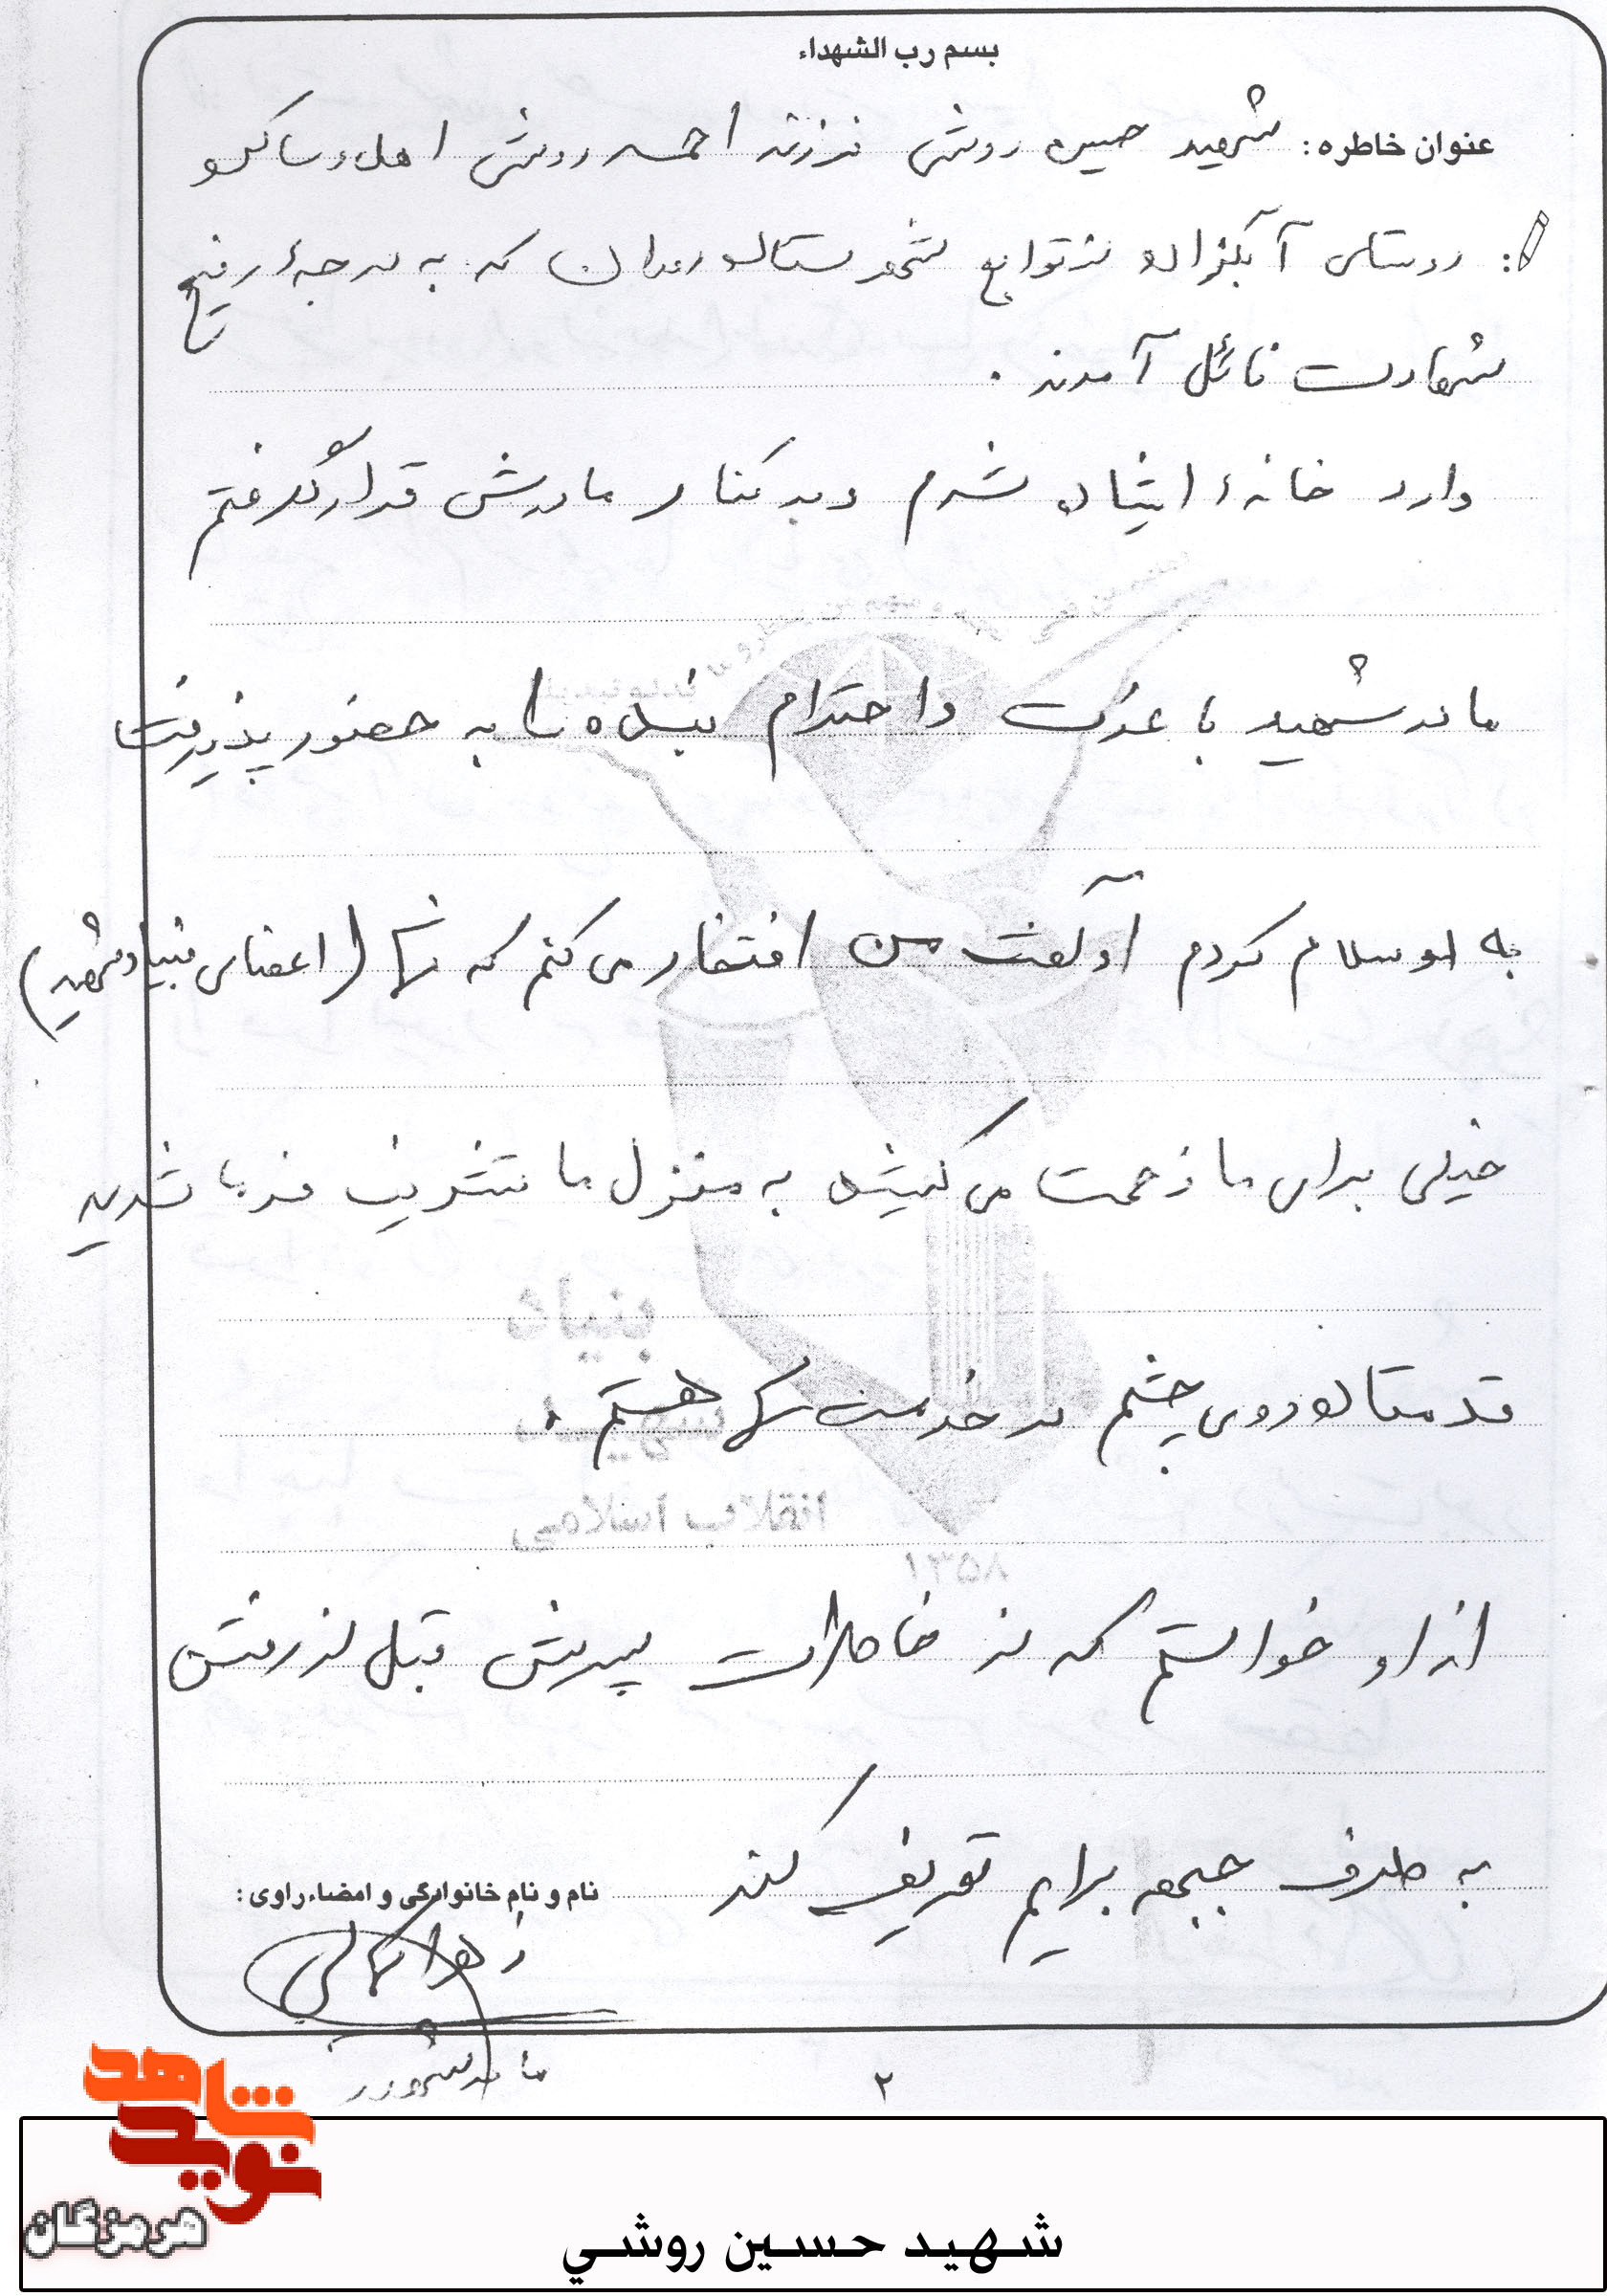 بسم رب الشهداء
عنوان خاطره: شهید حسین روشی فرزند احمد روشی اهل و ساکن
: روستای آبگزان از توابع شهرستان رودان که به درجهٔ رفیع
شهادت نائل آمدند.
وارد خانهٔ ایشان شدم و در کنار مادرش قرار گرفتم
مادر شهید با عزت و احترام بنده را به حضور پذیرفت
به او سلام کردم او گفت من افتخار می کنم که شما (اعضای بنیاد شهید)
خیلی برای ما زحمت می کشید به منزل ما تشریف فرما شدید
قدمتان روی چشم در خدمت شما هستم.
از او خواستم که از خاطرات پسرش قبل از رفتن
به طرف جبهه برایم تعریف کند
نام و نام خانوادگی و امضاء راوی:
زهرا
مادر شهید
۲
بنیاد
شهید
انقلاب اسلامی
۱۳۵۸
نوید شاهد
هرمزگان
شهید حسین روشي